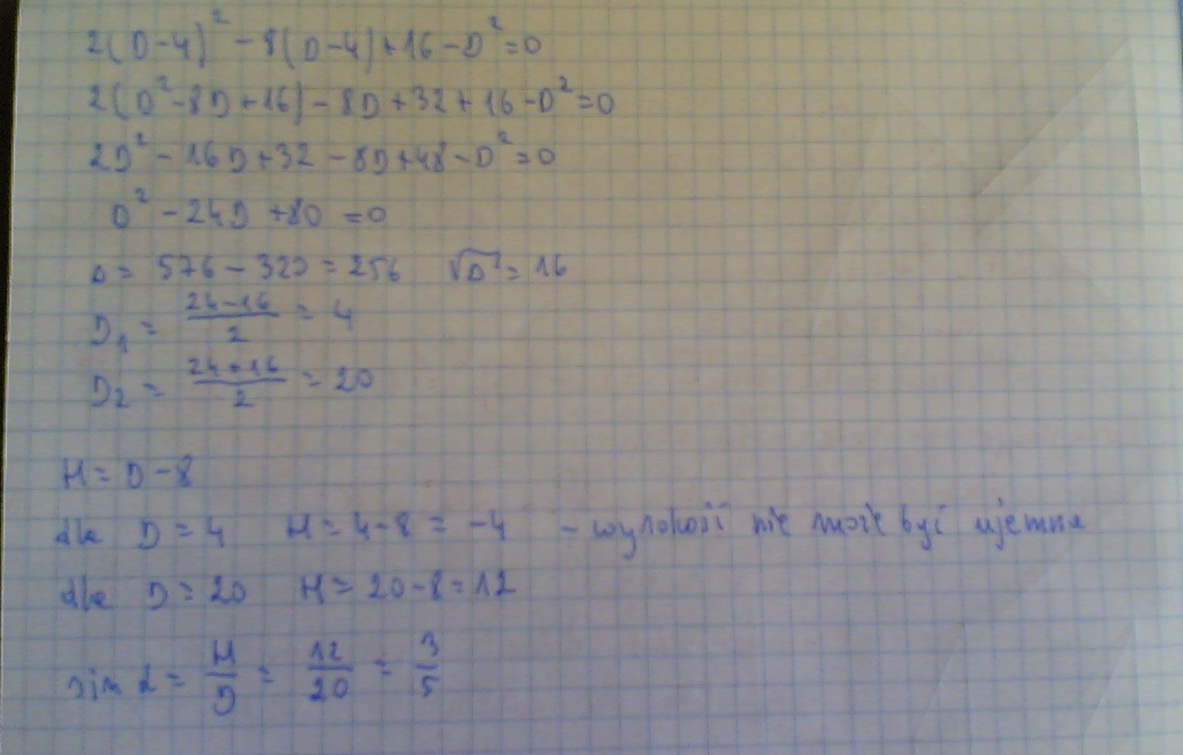 2(D-4)² - 8(D-4) + 16 - D² = 0
2(D² - 8D + 16) - 8D + 32 + 16 - D² = 0
2D² - 16D + 32 - 8D + 48 - D² = 0
D² - 24D + 80 = 0
Δ = 576 - 320 = 256 √Δ = 16
D₁ = (24-16)/2 = 4
D₂ = (24+16)/2 = 20
H = D - 8
dla D = 4 H = 4 - 8 = -4 - wysokość nie może być ujemna
dla D = 20 H = 20 - 8 = 12
sin α = H/D = 12/20 = 3/5